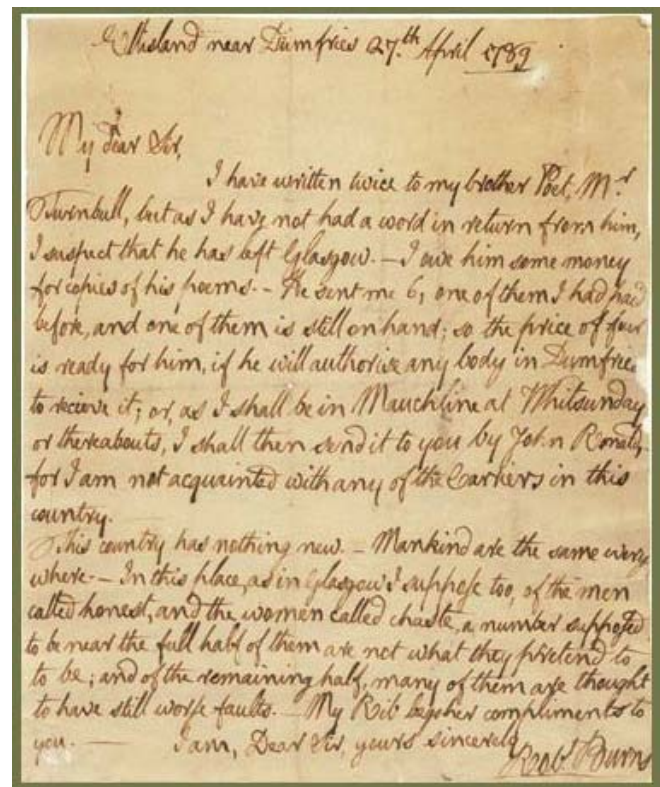 Ellisland near Dumfries 27.th April 1789
My Dear Sir,
I have written twice to my brother Poet, Mr
Turnbull, but as I have not had a word in return from him,
I suspect that he has left Glasgow. — I owe him some money
for copies of his poems. — He sent me 6, one of them I had had
before, and one of them is still on hand; so the price of four
is ready for him, if he will authorise any body in Dumfries
to recieve it; or, as I shall be in Mauchline at Whitsunday
or thereabouts, I shall then send it to you by John Ronald,
for I am not acquainted with any of the Carriers in this
country.
This country has nothing new. — Mankind are the same every
where. — In this place, as in Glasgow I suppose too, of the men
called honest, and the women called chaste, a number supposed
to be near the full half of them are not what they pretend to
to be; and of the remaining half, many of them are thought
to have still worse faults. — My Rib begs her compliments to
you. — I am, Dear Sir, yours sincerely
Robt Burns